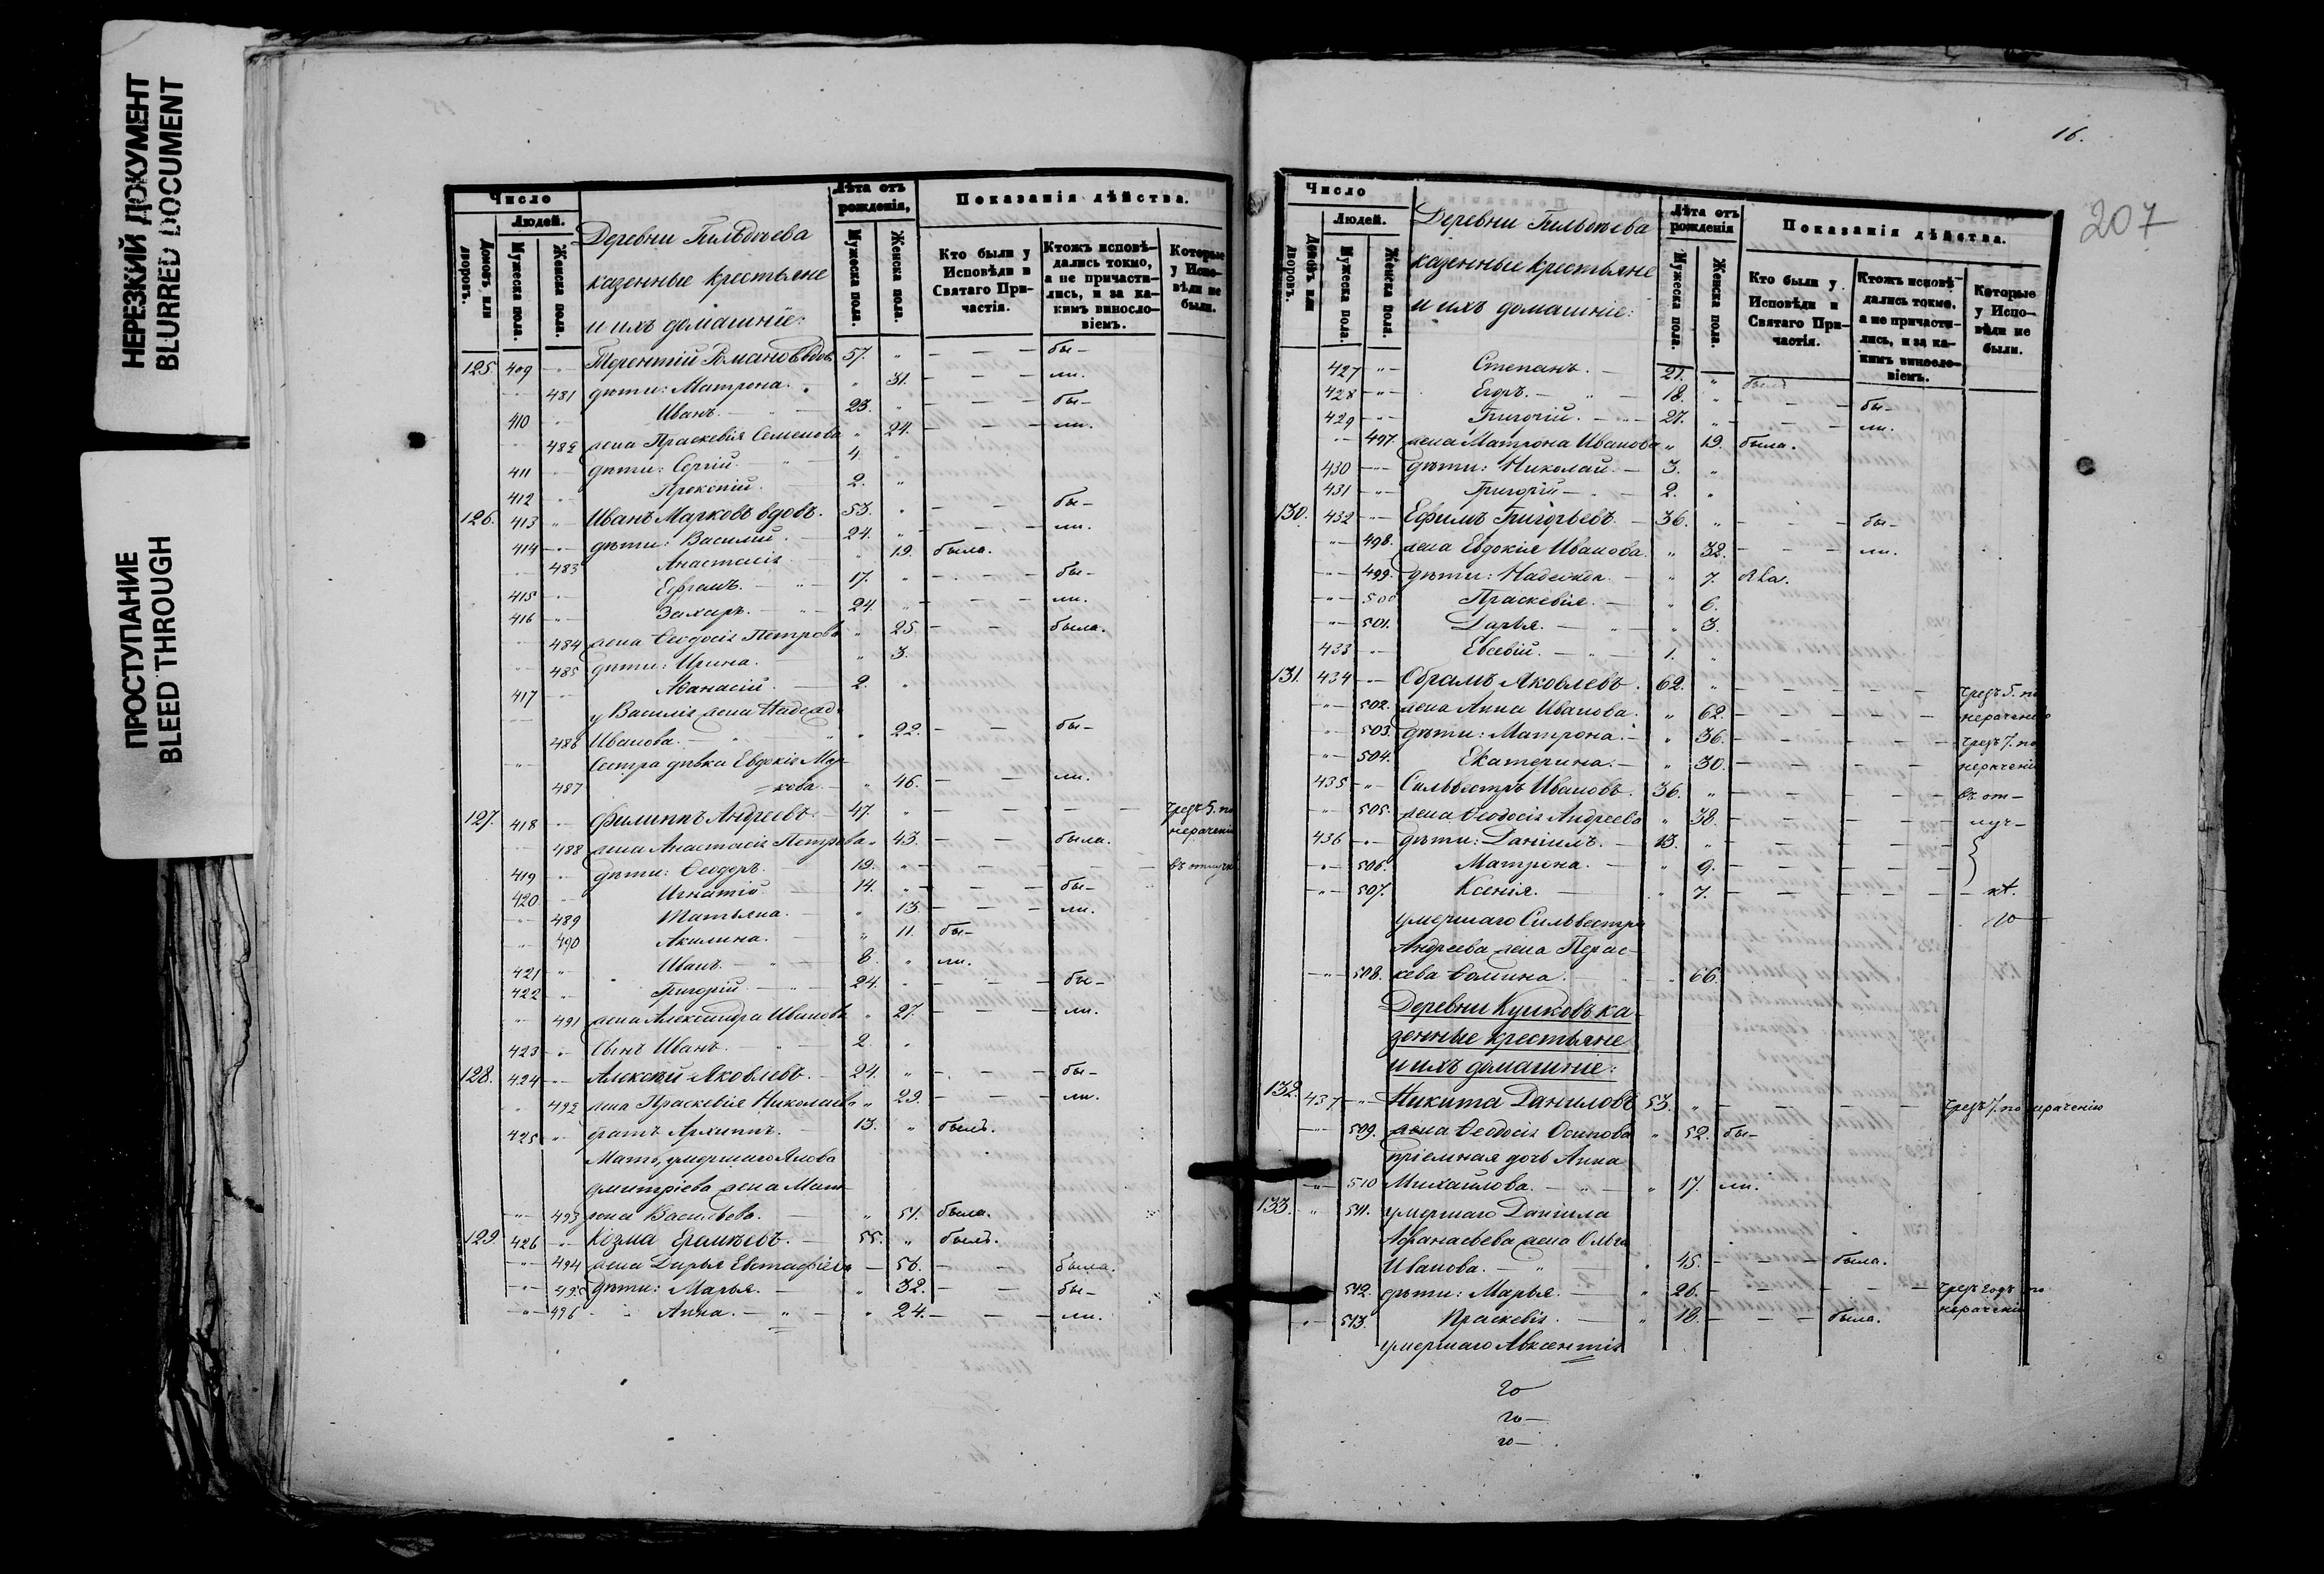 НЕРЕЗКИЙ ДОКУМЕНТ
BLURRED DOCUMENT
ПРОСТУПАНИЕ
BLEED THROUGH
Число
Людей.
Домовъ или дворовъ.
Мужеска пола.
Женска пола.
Деревни Гильдѣева
казенные крестьяне
и ихъ домашніе:
Лѣта отъ рожденія,
Мужеска пола.
Женска пола.
Показанія дѣйства.
Кто были у Исповѣди и Святаго Причастія.
Ктожъ исповѣдались токмо, а не причастились, и за какимъ винословіемъ.
Которые у Исповѣди не были.
125. 409 Терентій Романовъ вдовъ 57. бы-
481 дѣти: Матрона. 31. ли.
410 Иванъ. 23. бы-
482 жена Праскевія Семенова 24. ли.
411 дѣти: Сергій 4.
412 2.
126. 413 Иванъ Марковъ вдовъ. 53. бы-
414 дѣти: Василій. 24. ли.
483 Анастасія 19. была.
415 Ефремъ. 17. бы-
416 Захаръ. 24. ли.
484 жена Ѳеодосія Петрова 25. была.
485 дѣти: Ирина. 3.
417 Аѳанасій. 2.
у Василія жена Надежда
486 Иванова. 22. бы-
Сестра дѣвка Евдокія Мар-
487 кова. 46. ли.
127. 418 Филиппъ Андреевъ. 47. чрезъ 5. по
нерачению
488 жена Анастасія Петрова 43. была.
419 дѣти: Ѳеодоръ. 19. въ отлучкѣ
420 Игнатій 14. бы-
489 Татьяна. 13. ли.
490 Акилина. 11. бы-
421 Иванъ. 8. ли.
422 Григорій 24. бы-
491 жена Александра Иванова 27. ли.
423 сынъ Иванъ. 2.
128. 424 Алексѣй Яковлевъ. 24. бы-
492 жена Праскевія Николаева 29. ли.
425 братъ Архиппъ. 13. былъ.
Мать, умершаго Якова
Дмитріева жена Мат-
493 рона Васильева. 51. была.
129. 426 Козма Еремѣевъ. 55. былъ.
494 жена Дарья Евстафіева 56. была.
495 дѣти: Марья. 32. бы-
496 Анна. 24. ли.
16.
207
Число
Людей.
Домовъ или дворовъ.
Мужеска пола.
Женска пола.
Деревни Гильдѣева
казенные крестьяне
и ихъ домашніе:
Лѣта отъ рожденія
Мужеска пола.
Женска пола.
Показанія дѣйства.
Кто были у Исповѣди и Святаго Причастія.
Ктожъ исповѣдались токмо, а не причастились, и за какимъ винословіемъ.
Которые у Исповѣди не были.
427 Степанъ. 21. былъ
428 Егоръ. 18. бы-
429 Григорій. 27. ли.
497. жена Матрона Иванова 19. была.
430 дѣти: Николай. 3.
431 Григорій 2.
130. 432 Ефимъ Григорьевъ. 36. бы-
498. жена Евдокія Иванова. 32. ли.
499. дѣти: Надежда. 7.
500 Праскевія. 6.
501. Дарья. 3.
433 Евсевій. 1.
131. 434 Обрамъ Яковлевъ. 62. чрезъ 5. по
502. жена Анна Иванова. 62. нерачению
503. дѣти: Матрона. 36. чрезъ 7. по
504. Екатерина. 30. нерачению
435 Сильвестръ Ивановъ. 36. въ от-
505. жена Ѳеодосія Андреева 38. луч-
436 дѣти: Даніилъ. 13.
506. Матрона. 9.
507. Ксенія. 7.
умершаго Сильвестра
Андреева жена Парас-
508. кева Ѳомина. 66.
Деревни Кушковъ ка-
зенные крестьяне
и ихъ домашніе:
132. 437 Никита Даниловъ 53. чрезъ 7. по нерачению
509. жена Ѳеодосія Осипова 52. бы-
пріемная дочь Анна
510 Михайлова. 17. ли.
133. 511. умершаго Даніила
Афанасьева жена Ольга
Иванова. 45. была.
512. дѣти: Марья. 26. чрезъ годъ по
нерачению
513. Праскевія. 18. была.
умершаго Авксентія